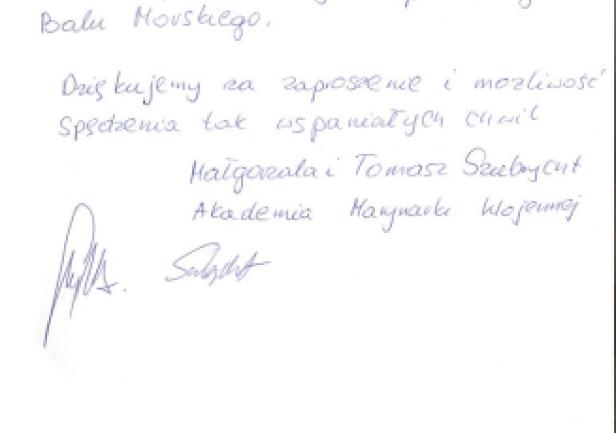 Balu Morskiego.
Dziękujemy za zaproszenie i możliwość
spędzenia tak wspaniałych chwil
Małgorzata i Tomasz Szubrycht
Akademia Marynarki Wojennej